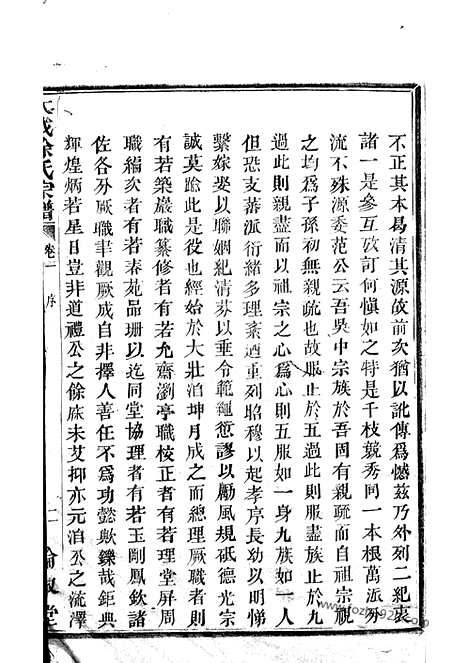 不正其本曷清其源故前次猶以訛傳爲憾茲乃外列二紀衷
諸一是參互攷訂何慎如之特是千枝競秀同一本根萬派分
流不殊源委范公云吾吳中宗族於吾固有親疏而自祖宗視
之均爲子孫初無親疏也故服止於五過此則服盡族止於九
過此則親盡而以祖宗之心爲心則五服如一身九族如一人
但恐支蕃派衍緒多理紊迺重列昭穆以起孝序長幼以明悌
繫嫁娶以聯姻紀清芬以垂令範繩愆謬以勵風規砥德光宗
誠莫踰此是役也經始於大壯洎坤月成之而總理厥職者則
有若築巖職纂修者有若允齋瀏亭職校正者有若理堂屏周
職編次者有若春苑品珊以迄同堂協理者有若玉剛鳳欽諸
佐各分厥職聿觀厥成自非擇人善任不爲功懿歟鑠哉鉅典
輝煌炳若星日豈非道禮公之餘庥未艾抑亦元洎公之流澤
徐氏宗譜
卷一
序
二
倫敘堂